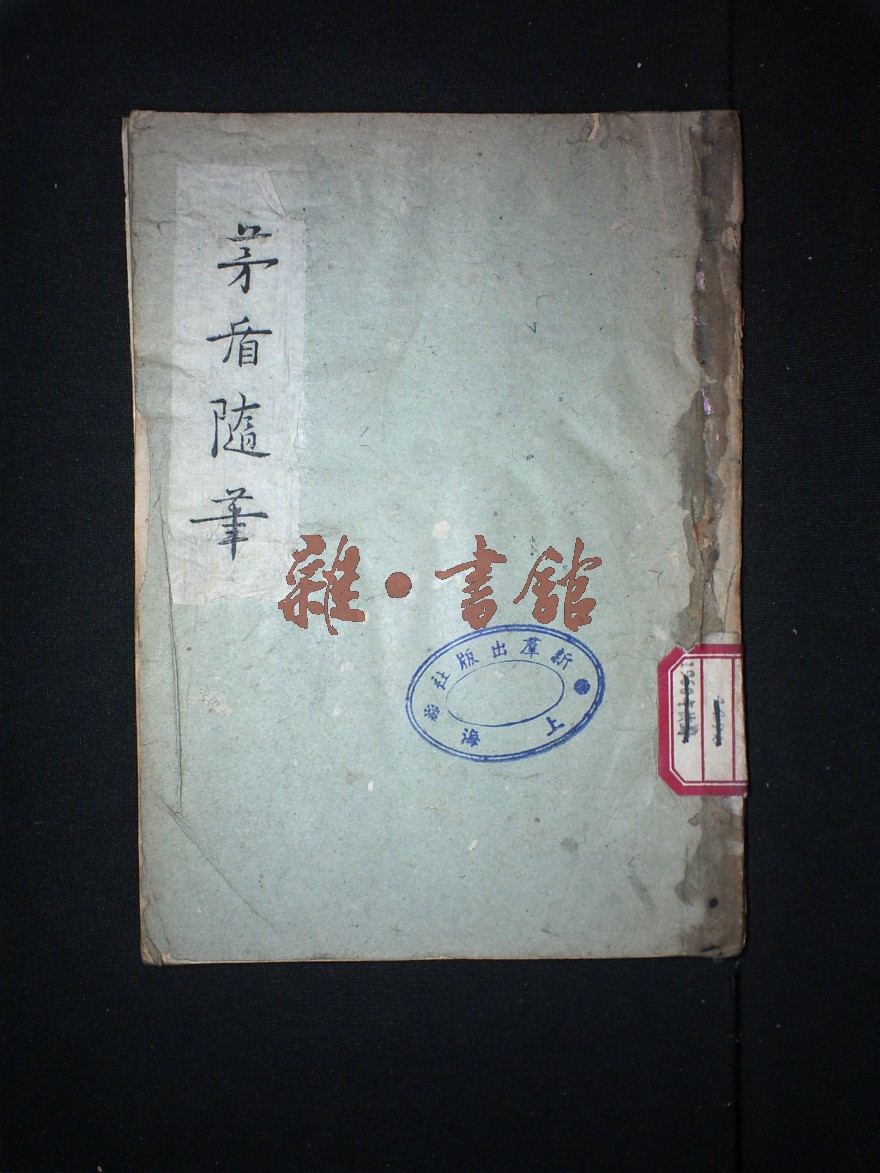 茅盾隨筆
雜·書館
新羣出版社
上海